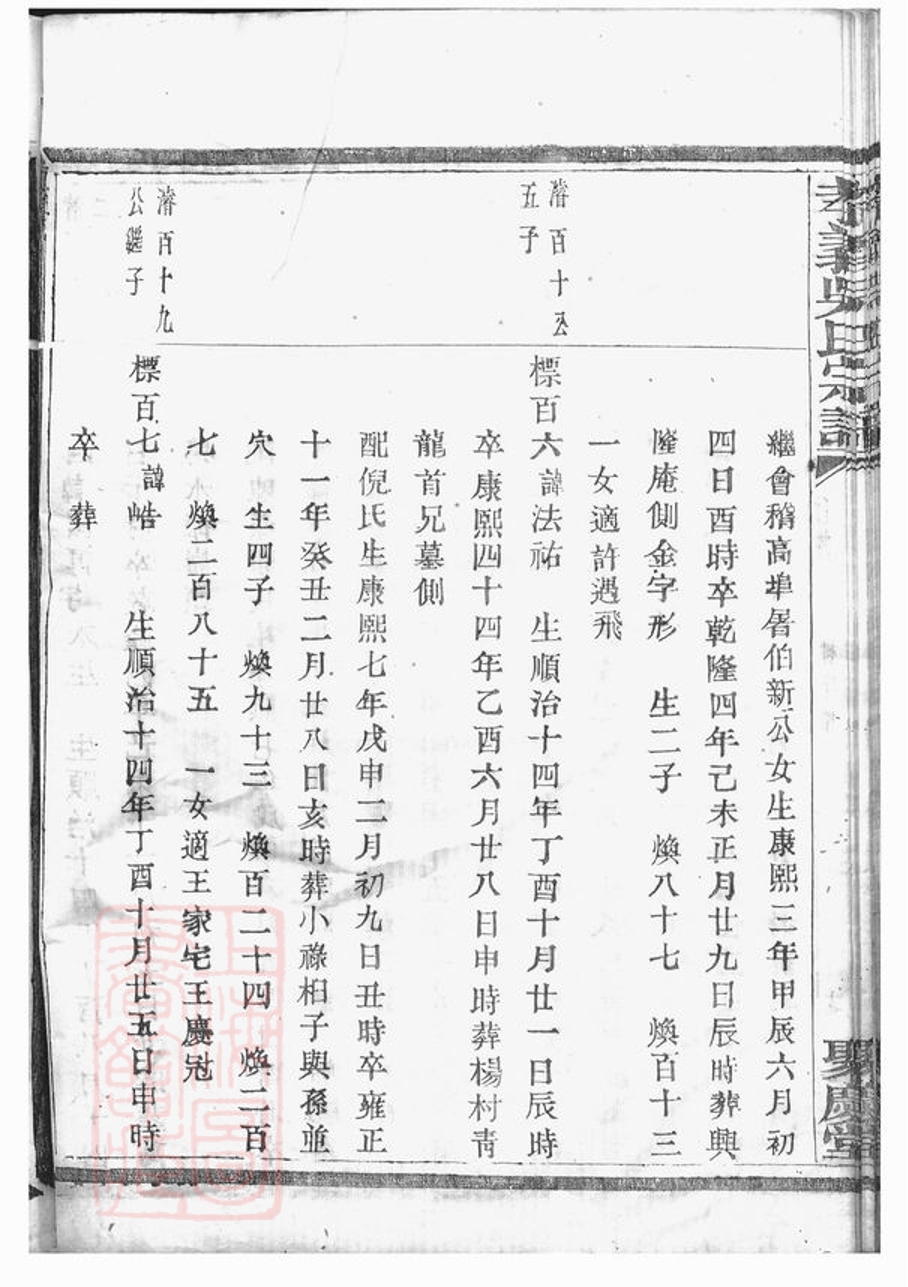 孝義吳氏宗譜
聚慶堂
繼會稽高埠屠伯新公女生康熙三年甲辰六月初
四日酉時卒乾隆四年己未正月廿九日辰時葬興
隆庵側金字形 生二子 煥八十七 煥百十三
一女適許遇飛
濬百十五
五子
標百六諱法祐 生順治十四年丁酉十月廿一日辰時
卒康熙四十四年乙酉六月廿八日申時葬楊村靑
龍首兄墓側
配倪氏生康熙七年戊申二月初九日丑時卒雍正
十一年癸丑二月廿八日亥時葬小祿柏子與孫並
穴 生四子 煥九十三 煥百二十四 煥二百
七 煥二百八十五 一女適王家宅王慶冠
濬百十九
公繼子
標百七諱皓 生順治十四年丁酉十月廿五日申時
卒 葬